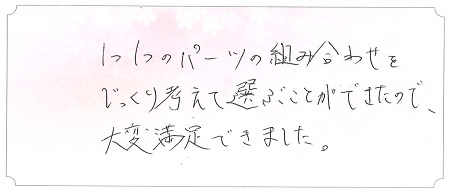 1つ1つのパーツの組み合わせを
じっくり考えて選ぶことができたので、
大変満足できました。